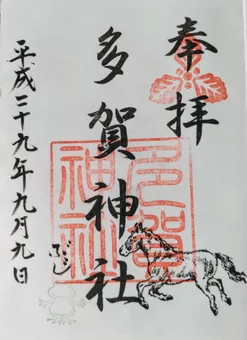 奉拝
多賀神社
多賀
神社
平成二十九年九月九日